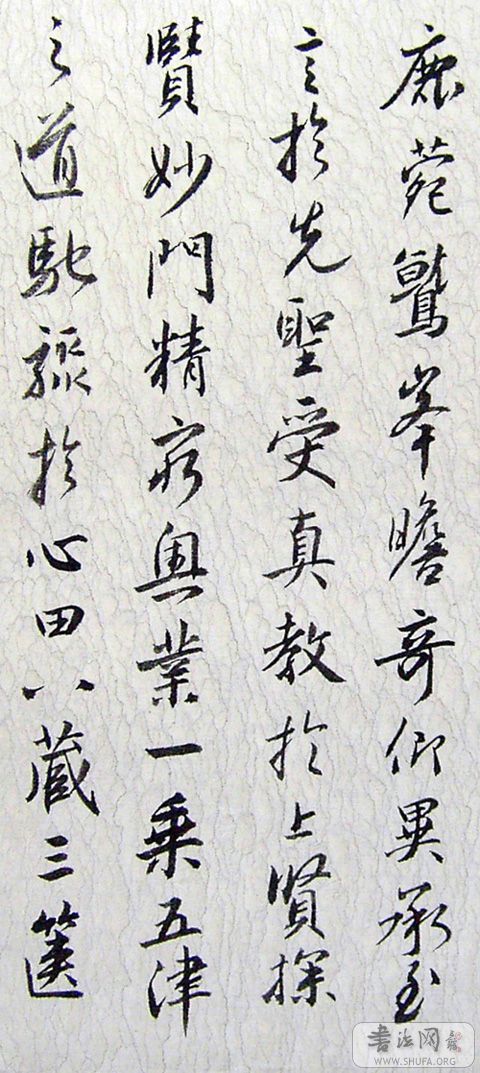 鹿菀鷲峯瞻奇仰異承至
言於先聖受真教於上賢探
賾妙門精窮奧業一乘五津
之道馳驟於心田八藏三篋
書法网
WWW.SHUFA.ORG